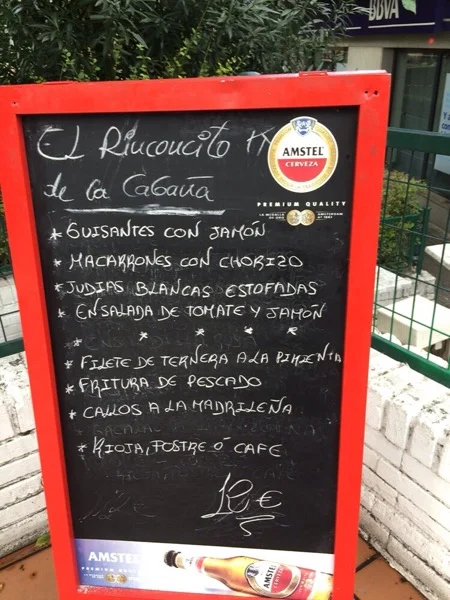 BBVA
EL Rinconcito
de la Cabaña
AMSTEL
CERVEZA
PREMIUM QUALITY
* GUISANTES CON JAMÓN
* MACARRONES CON CHORIZO
* JUDIAS BLANCAS ESTOFADAS
* ENSALADA DE TOMATE Y JAMÓN
* * * * *
* FILETE DE TERNERA A LA PIMIENTA
* FRITURA DE PESCADO
* CALLOS A LA MADRILEÑA
* RIOJA, POSTRE Ó CAFE
€
AMSTEL
PREMIUM
AMSTEL